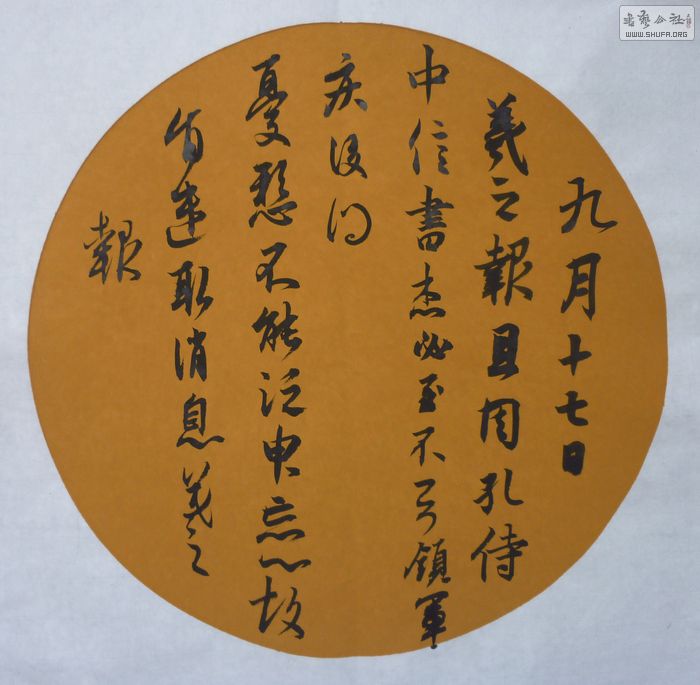 九月十七日
羲之報且因孔侍
中信書想必至不知領軍
疾後問
憂懸不能須臾忘心故
旬遣取消息羲之
報
書藝公社
WWW.SHUFA.ORG